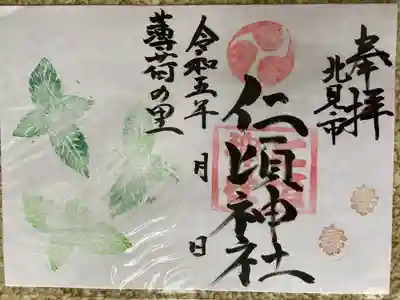 奉拝
北見市
仁頃神社
令和五年 月 日
薄荷の里